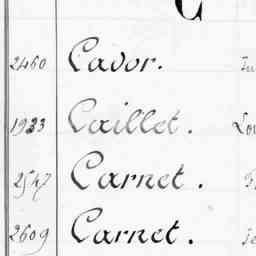 C
2460 Cavor.
1923 Caillet.
2547 Carnet.
2609 Carnet.